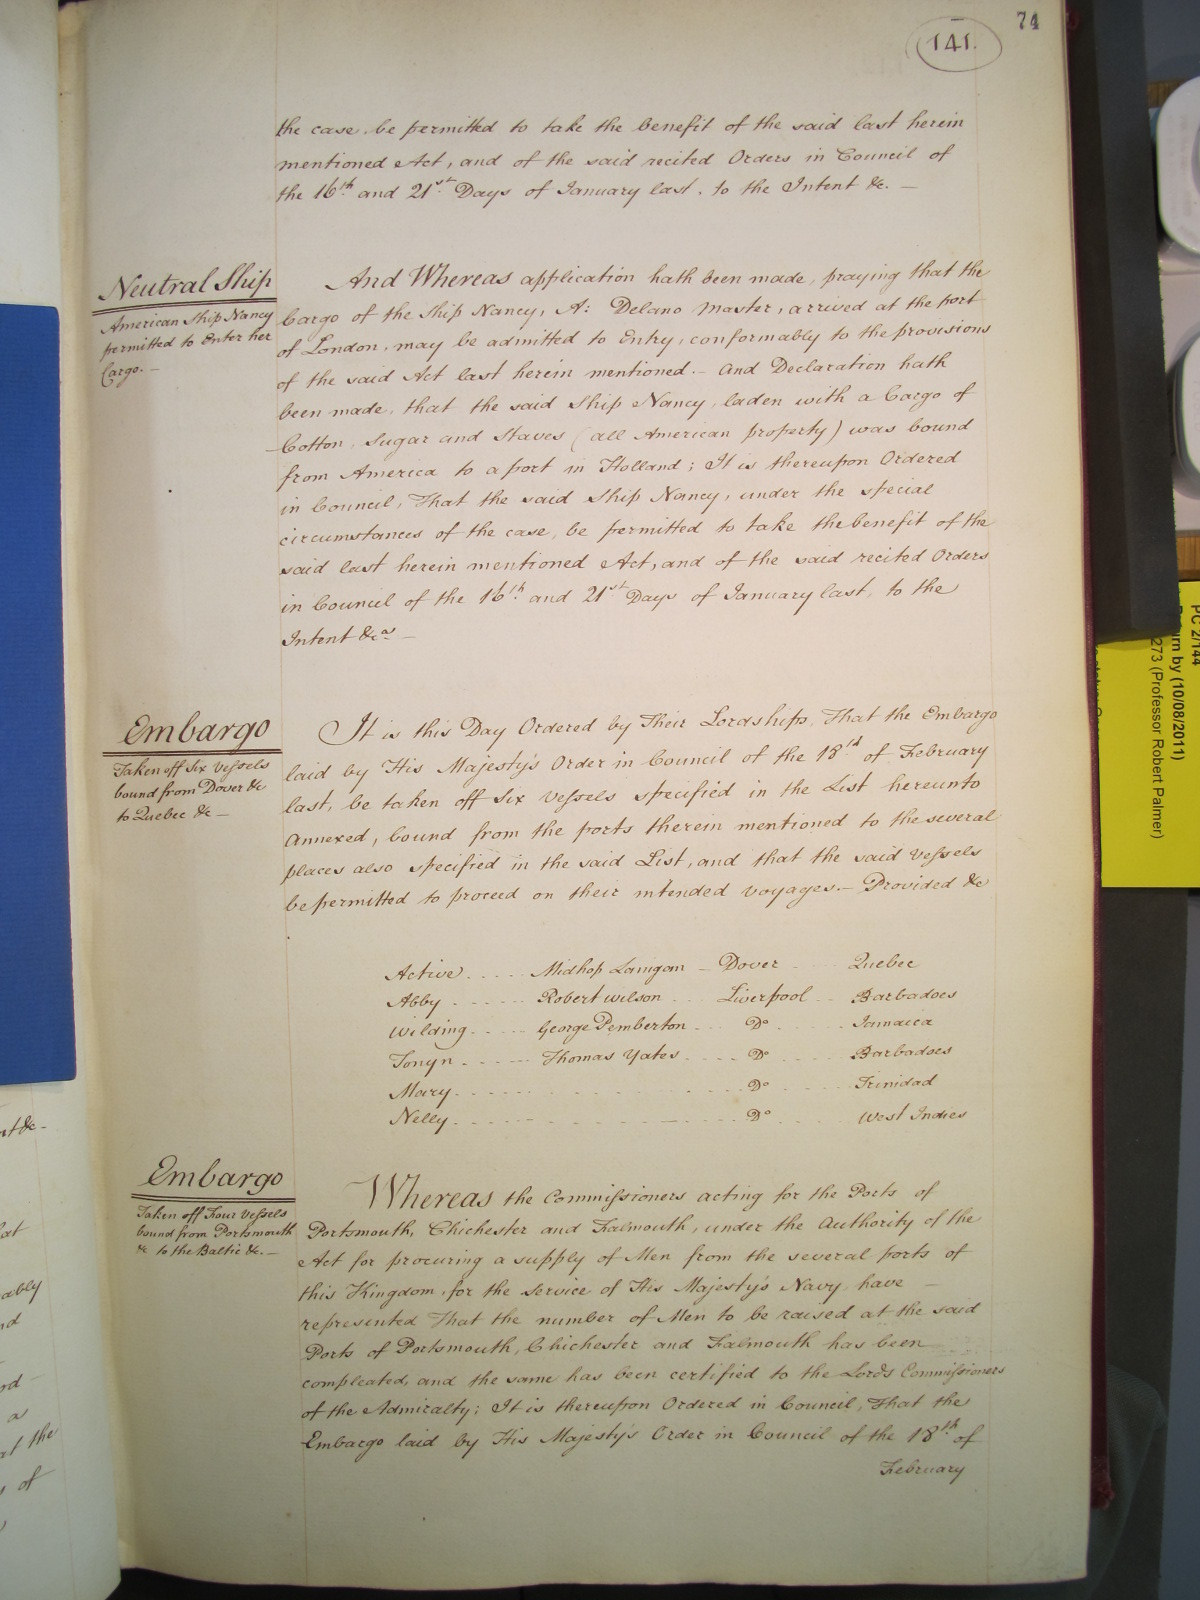 74
141.
the case be permitted to take the benefit of the said last herein
mentioned Act, and of the said recited Orders in Council of
the 16th and 21st Days of January last, to the Intent &c. —
Neutral Ship
American Ship Nancy
permitted to Enter her
Cargo. —
And Whereas application hath been made, praying that the
Cargo of the Ship Nancy, A: Delano Master, arrived at the port
of London, may be admitted to Entry, conformably to the provisions
of the said Act last herein mentioned. — And Declaration hath
been made, that the said Ship Nancy, laden with a Cargo of
Cotton, Sugar and Staves (all American property) was bound
from America to a port in Holland; It is thereupon Ordered
in Council, That the said Ship Nancy, under the special
circumstances of the case, be permitted to take the benefit of the
said last herein mentioned Act, and of the said recited Orders
in Council of the 16th and 21st Days of January last, to the
Intent &ca —
Embargo
Taken off Six Vessels
bound from Dover &c
to Quebec &c —
It is this Day Ordered by Their Lordships, That the Embargo
laid by His Majesty's Order in Council of the 18th of February
last, be taken off Six Vessels specified in the List hereunto
Annexed, bound from the ports therein mentioned to the several
places also specified in the said List, and that the said Vessels
be permitted to proceed on their intended voyages. — Provided &c
Active ..... Midhop Lanigan — Dover .... Quebec
Abby ..... Robert Wilson .... Liverpool ... Barbadoes
Wilding ..... George Pemberton ... Do ..... Jamaica
Tonyn ..... Thomas Yates .... Do ..... Barbadoes
Mary ..... Do ..... Trinidad
Nelly ..... Do ..... West Indies
Embargo
Taken off Four Vessels
bound from Portsmouth
&c to the Baltic &c. —
Whereas the Commissioners acting for the Ports of
Portsmouth, Chichester and Falmouth, under the Authority of the
Act for procuring a supply of Men from the several ports of
this Kingdom, for the Service of His Majesty's Navy, have —
represented That the number of Men to be raised at the said
Ports of Portsmouth, Chichester and Falmouth has been
compleated, and the same has been certified to the Lords Commissioners
of the Admiralty; It is thereupon Ordered in Council, That the
Embargo laid by His Majesty's Order in Council of the 18th of
February
PC 2/144
rn by (10/08/2011)
273 (Professor Robert Palmer)
nt &c.
at
ably
nd
rd —
a
at the
of